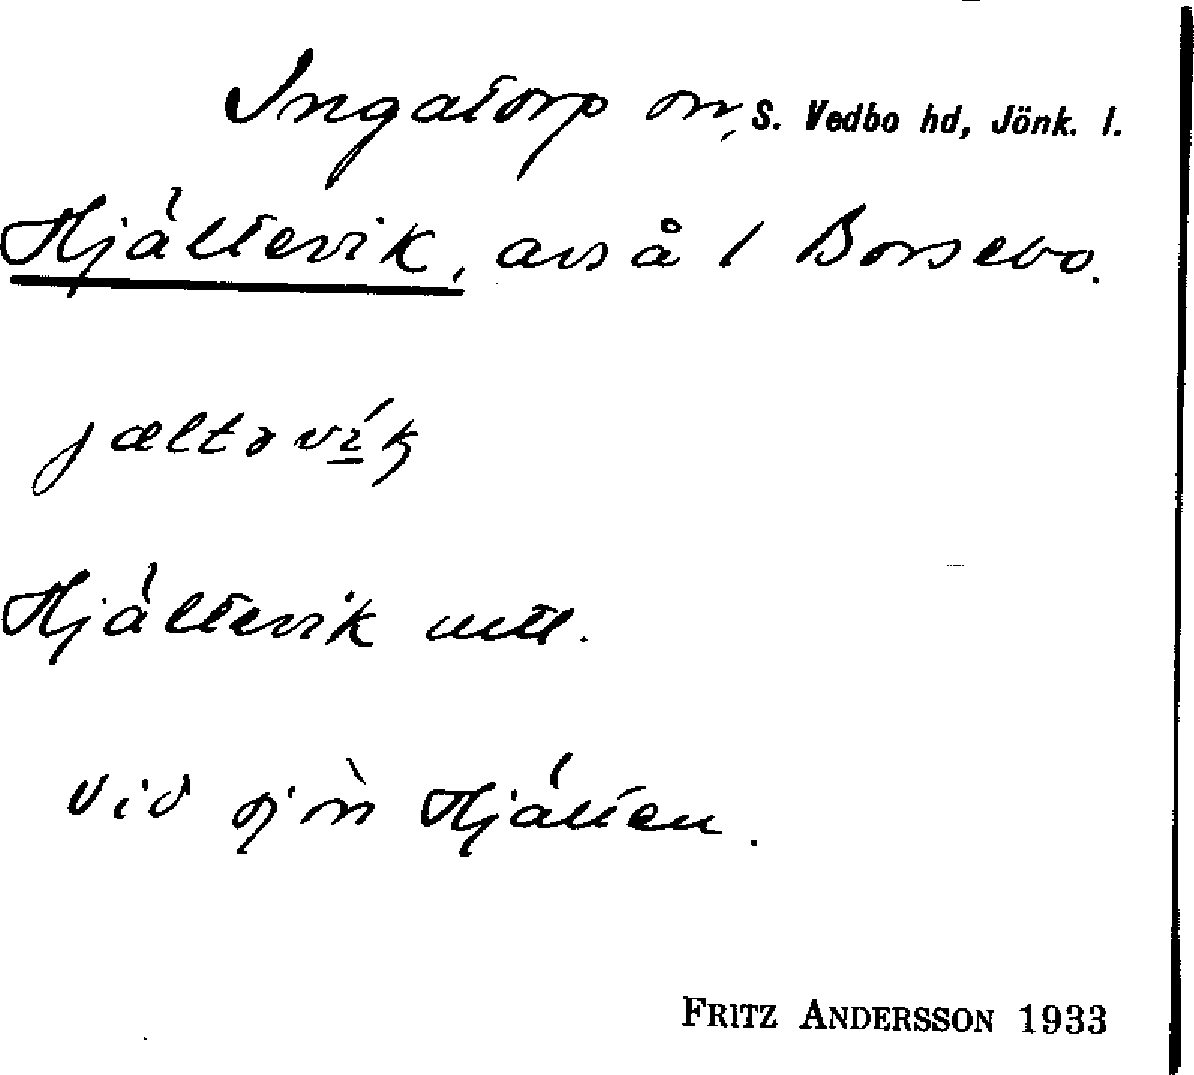 Ingatorp sn, S. Vedbo hd, Jönk. l.
Hjältevik, avs å 1 Borsebo.
jæltəvik
Hjältevik uttl.
Vid sjön Hjälten.
FRITZ ANDERSSON 1933